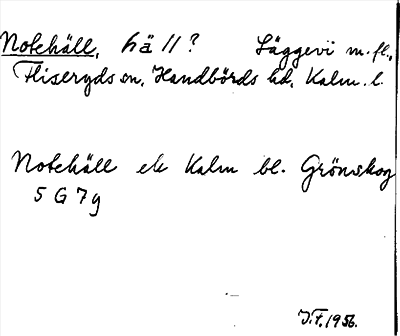 Notehäll, häll? Läggevi m.fl.,
Fliseryds sn, Handbörds hd, Kalm. l.
Notehäll ek Kalm bl. Grönskog
5 G 7 g
J.F. 1956.